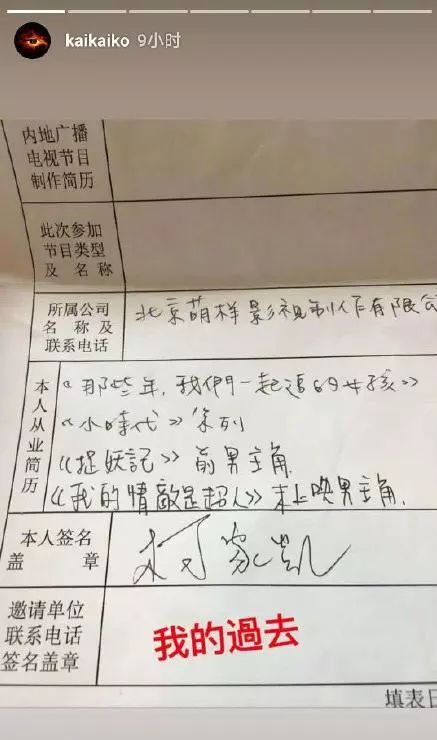 kaikaiko 9小时
内地广播
电视节目
制作简历
此次参加
节目类型
及名称
所属公司
名称及
联系电话
北京萌样影視制作有限公
本人从业简历
《那些年,我們一起追的女孩》
《小時代》系列
《捉妖記》前男主角
《我的情敵是超人》未上映男主角.
本人签名
盖章
柯家凱
邀请单位
联系电话
签名盖章
我的過去
填表日